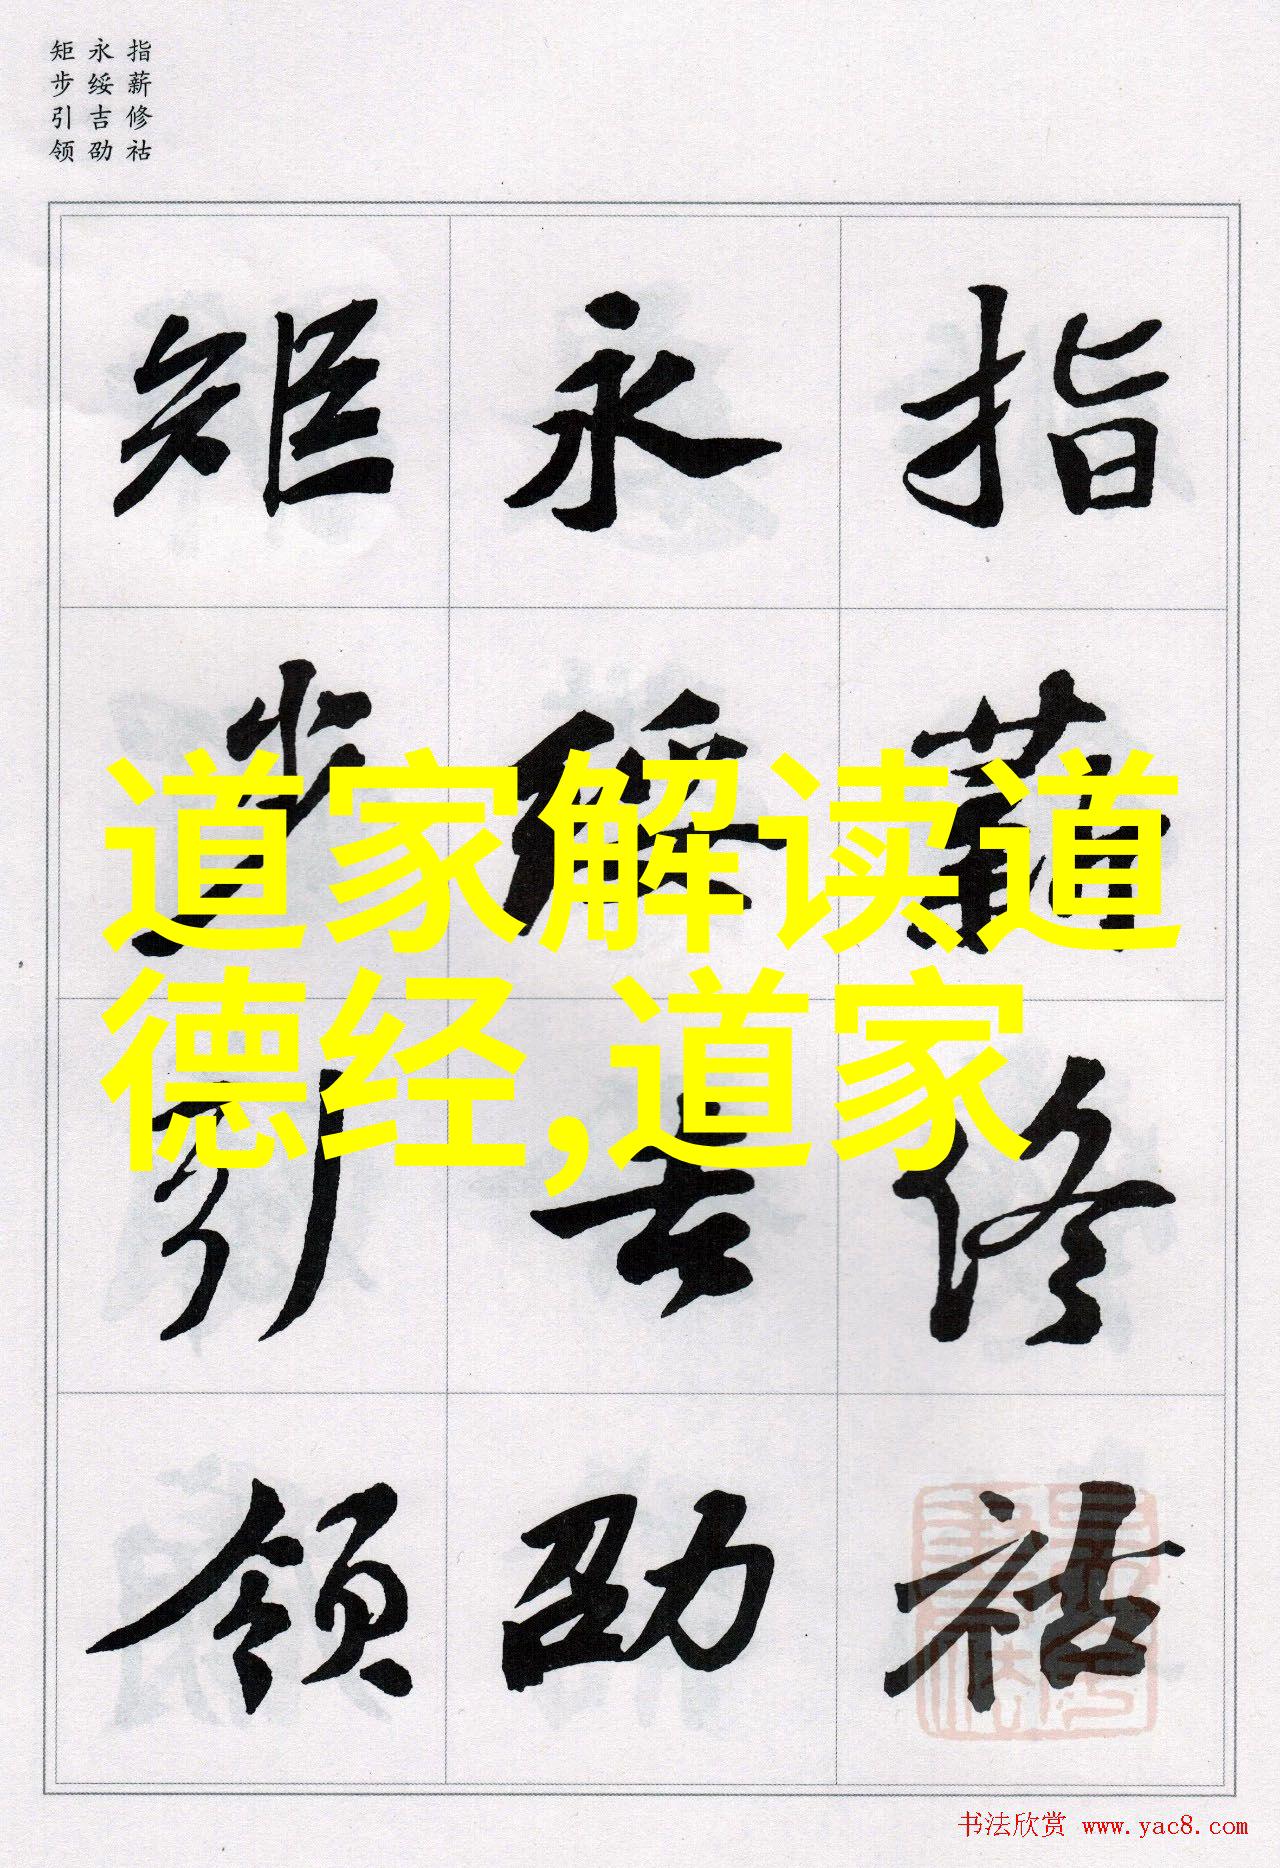 指薪修祜
永绥吉劭
矩步引领
指薪修祜
永绥吉劭
矩步引领
道家解读道
德经,道家
书法欣赏 www.yac8.com